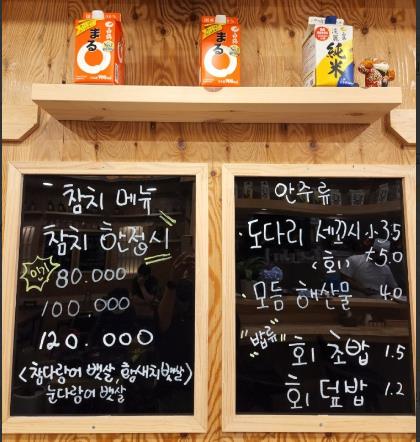 まる
まる
純米
참치 메뉴
참치 한정시
인기 80.000
100.000
120.000
<참다랑어 뱃살, 황새치뱃살>
눈다랑어 뱃살
안주류
· 도다리 세꼬시 小 3.5
<회> 大 5.0
· 모듬 해산물 4.0
"밥류"
회 초밥 1.5
회 덮밥 1.2